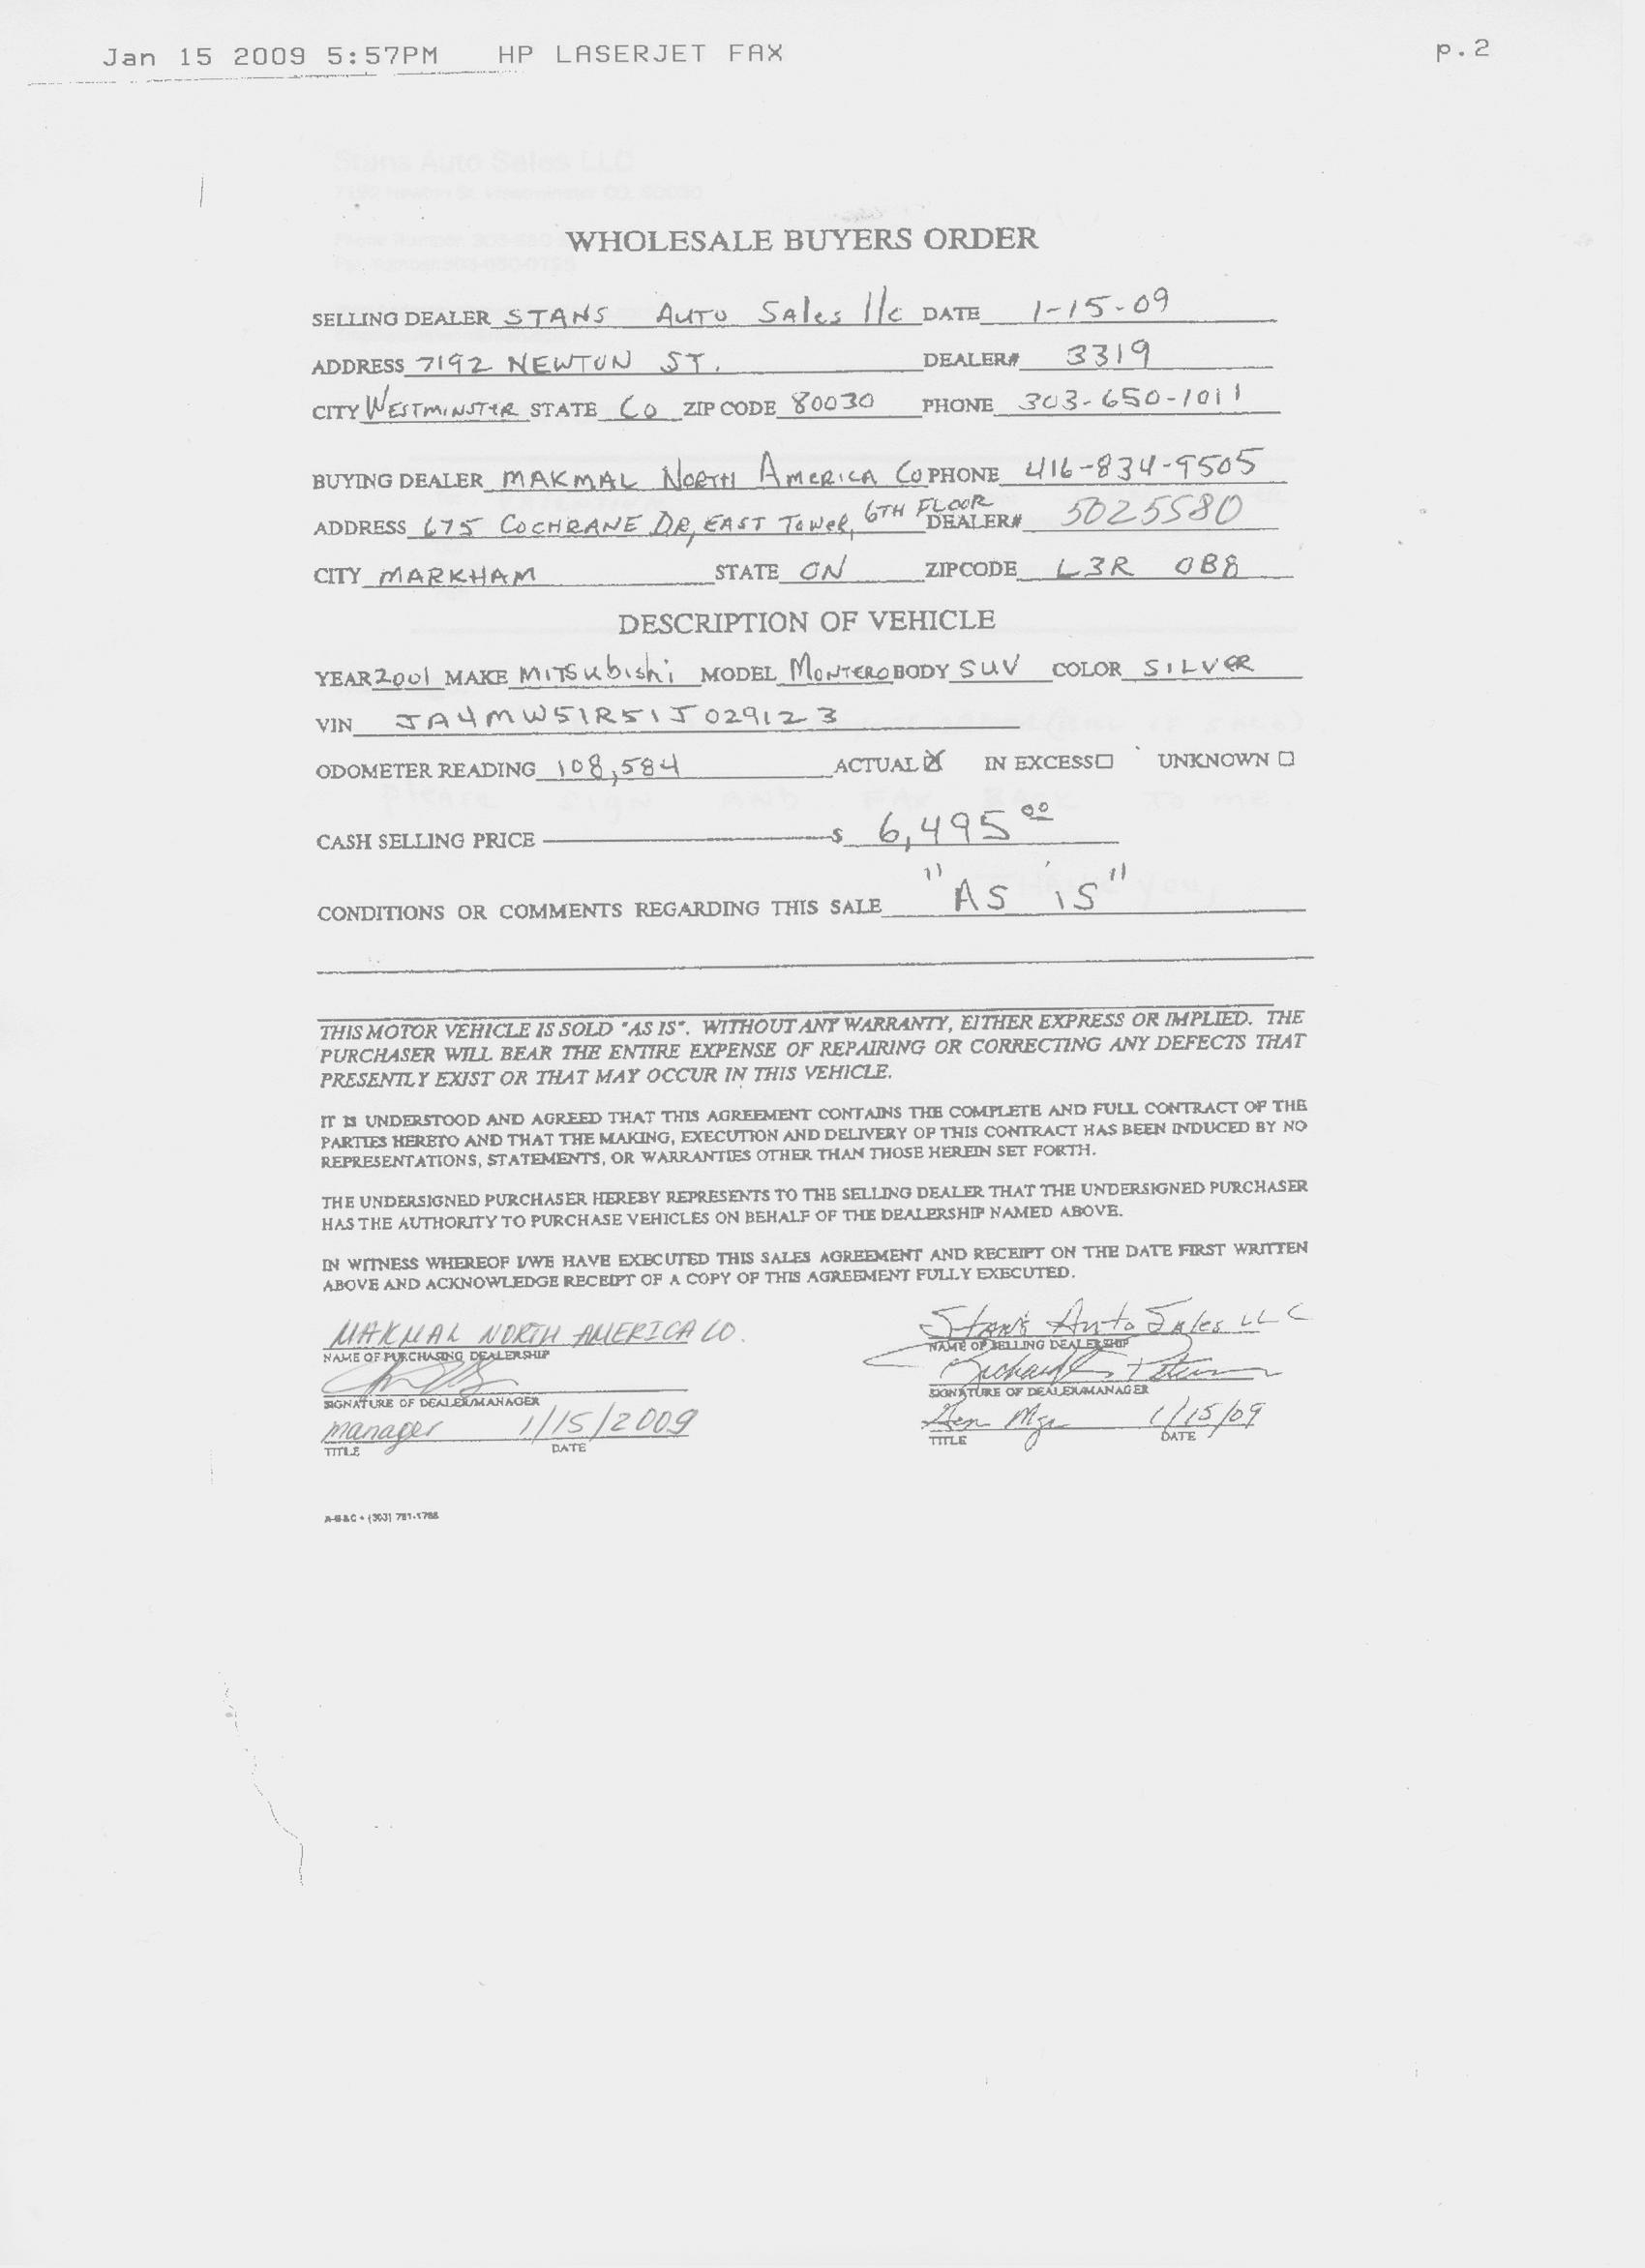 Jan 15 2009 5:57PM HP LASERJET FAX p.2
Stans Auto Sales LLC
WHOLESALE BUYERS ORDER
SELLING DEALER STANS AUTO SAles llc DATE 1-15-09
ADDRESS 7192 NEWTON ST. DEALER# 3319
CITY WESTMINSTER STATE CO ZIP CODE 80030 PHONE 303-650-1011
BUYING DEALER MAKMAL NORTH AMERICA Co PHONE 416-834-9505
ADDRESS 675 COCHRANE DR, EAST TOWER, 6TH FLOOR DEALER# 5025580
CITY MARKHAM STATE ON ZIPCODE L3R 0B8
DESCRIPTION OF VEHICLE
YEAR 2001 MAKE MITSubishi MODEL MONTERO BODY SUV COLOR SILVER
VIN JA4MW51R51J029123
ODOMETER READING 108,584 ACTUAL ☒ IN EXCESS ☐ UNKNOWN ☐
CASH SELLING PRICE $ 6,495 00
CONDITIONS OR COMMENTS REGARDING THIS SALE "AS iS"
THIS MOTOR VEHICLE IS SOLD "AS IS". WITHOUT ANY WARRANTY, EITHER EXPRESS OR IMPLIED. THE
PURCHASER WILL BEAR THE ENTIRE EXPENSE OF REPAIRING OR CORRECTING ANY DEFECTS THAT
PRESENTLY EXIST OR THAT MAY OCCUR IN THIS VEHICLE.
IT IS UNDERSTOOD AND AGREED THAT THIS AGREEMENT CONTAINS THE COMPLETE AND FULL CONTRACT OF THE
PARTIES HERETO AND THAT THE MAKING, EXECUTION AND DELIVERY OF THIS CONTRACT HAS BEEN INDUCED BY NO
REPRESENTATIONS, STATEMENTS, OR WARRANTIES OTHER THAN THOSE HEREIN SET FORTH.
THE UNDERSIGNED PURCHASER HEREBY REPRESENTS TO THE SELLING DEALER THAT THE UNDERSIGNED PURCHASER
HAS THE AUTHORITY TO PURCHASE VEHICLES ON BEHALF OF THE DEALERSHIP NAMED ABOVE.
IN WITNESS WHEREOF I/WE HAVE EXECUTED THIS SALES AGREEMENT AND RECEIPT ON THE DATE FIRST WRITTEN
ABOVE AND ACKNOWLEDGE RECEIPT OF A COPY OF THIS AGREEMENT FULLY EXECUTED.
MAKMAL NORTH AMERICA CO. Stan's Auto Sales LLC
NAME OF PURCHASING DEALERSHIP NAME OF SELLING DEALERSHIP
SIGNATURE OF DEALER/MANAGER SIGNATURE OF DEALER/MANAGER
manager 1/15/2009 Gen Mgr 1/15/09
TITLE DATE TITLE DATE